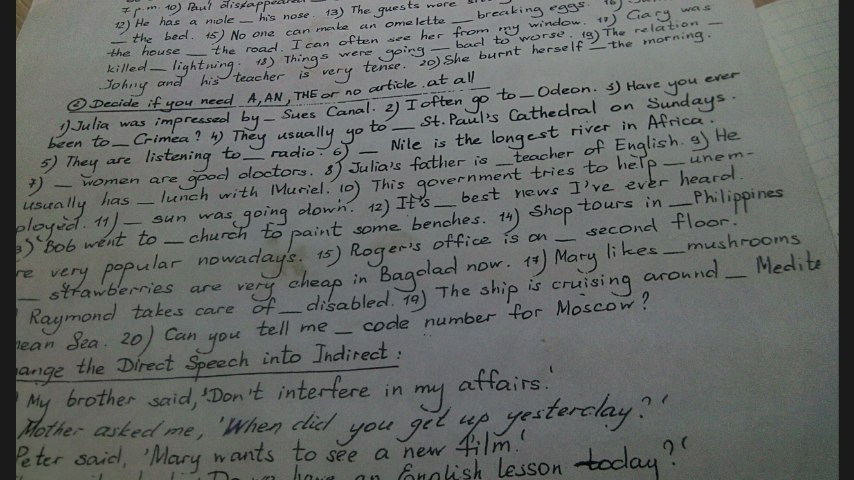 7 p.m. 10) Paul disappeared
12) He has a mole _ his nose. 13) The guests were
_ the bed. 15) No one can make an omelette _ breaking eggs. 16)
the house _ the road. I can often see her from my window. 17) Gary was
killed _ lightning. 18) Things were going _ bad to worse. 19) The relation _
Johny and his teacher is very tense. 20) She burnt herself _ the morning.
② Decide if you need A, AN, THE or no article at all
1) Julia was impressed by _ Sues Canal. 2) I often go to _ Odeon. 3) Have you ever
been to _ Crimea? 4) They usually go to _ St. Paul's Cathedral on Sundays.
5) They are listening to _ radio. 6) _ Nile is the longest river in Africa.
7) _ women are good doctors. 8) Julia's father is _ teacher of English. 9) He
usually has _ lunch with Muriel. 10) This government tries to help _ unem-
ployed. 11) _ sun was going down. 12) It's _ best news I've ever heard.
3) Bob went to _ church to paint some benches. 14) Shop tours in _ Philippines
re very popular nowadays. 15) Roger's office is on _ second floor.
_ strawberries are very cheap in Bagdad now. 17) Mary likes _ mushrooms
Raymond takes care of _ disabled. 19) The ship is cruising around _ Medite
nean Sea. 20) Can you tell me _ code number for Moscow?
ange the Direct Speech into Indirect:
My brother said, 'Don't interfere in my affairs.'
Mother asked me, 'When did you get up yesterday?'
Peter said, 'Mary wants to see a new film.'
have an English lesson today?'